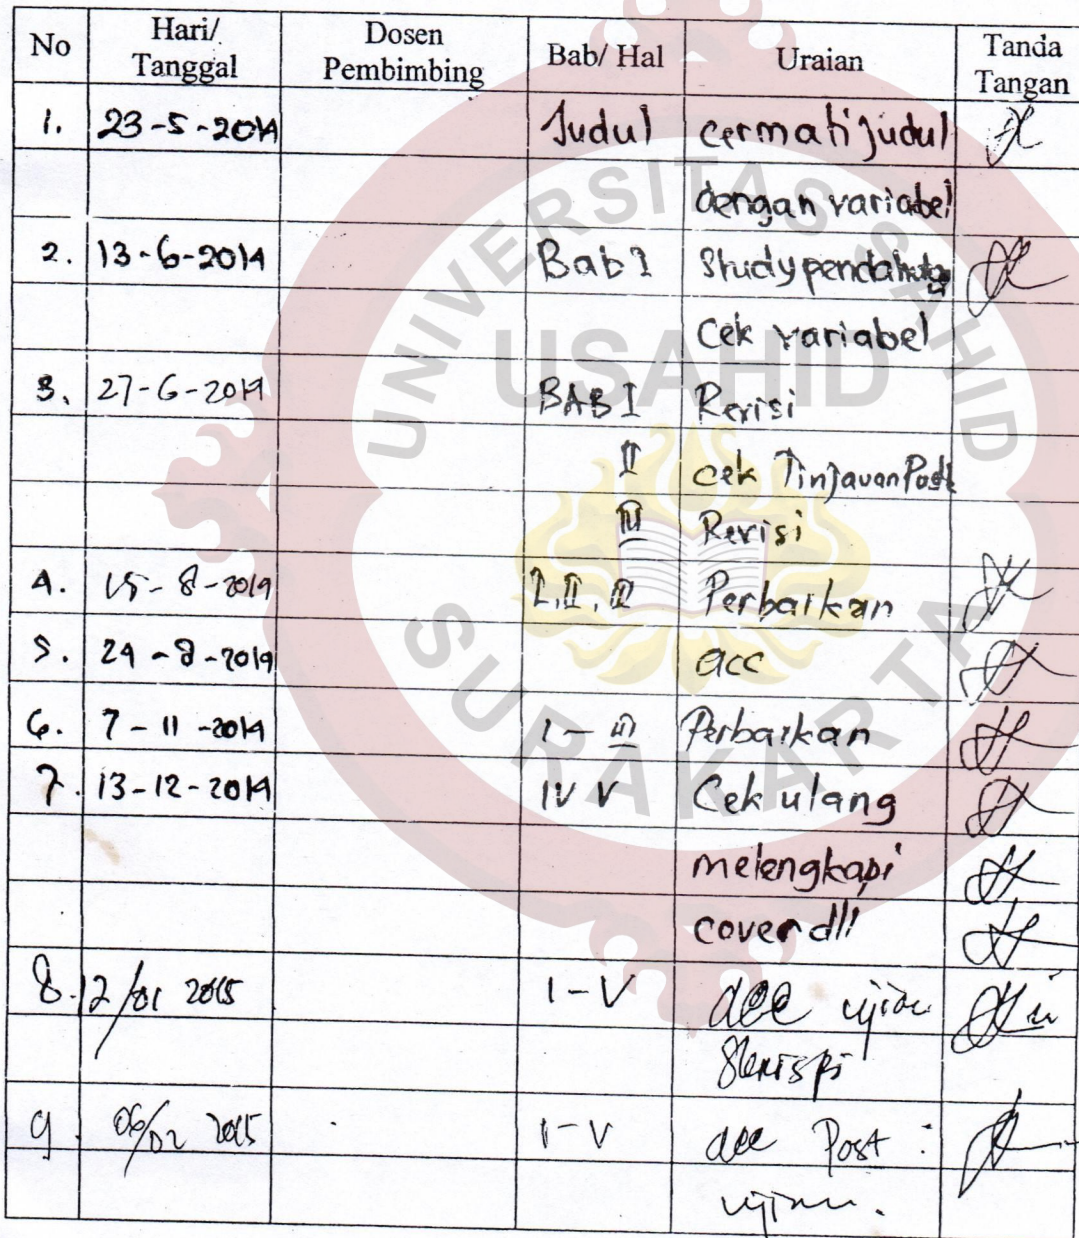 No Hari/ Tanggal Dosen Pembimbing Bab/ Hal Uraian Tanda Tangan
1. 23-5-2014 Judul cermati judul
dengan variabel
2. 13-6-2014 Bab I Study pendahulu
Cek variabel
3. 27-6-2014 BAB I Revisi
II cek Tinjauan
III Revisi
4. 15-8-2014 I, II, III Perbaikan
5. 24-8-2014 acc
6. 7-11-2014 I - III Perbaikan
7. 13-12-2014 IV V Cek ulang
melengkapi
cover dll
8. 12/01 2015 I-V acc ujian
Skripsi
9. 06/02 2015 I-V acc Post
ujian.
UNIVERSITAS SAHID
USAHID
SURAKARTA